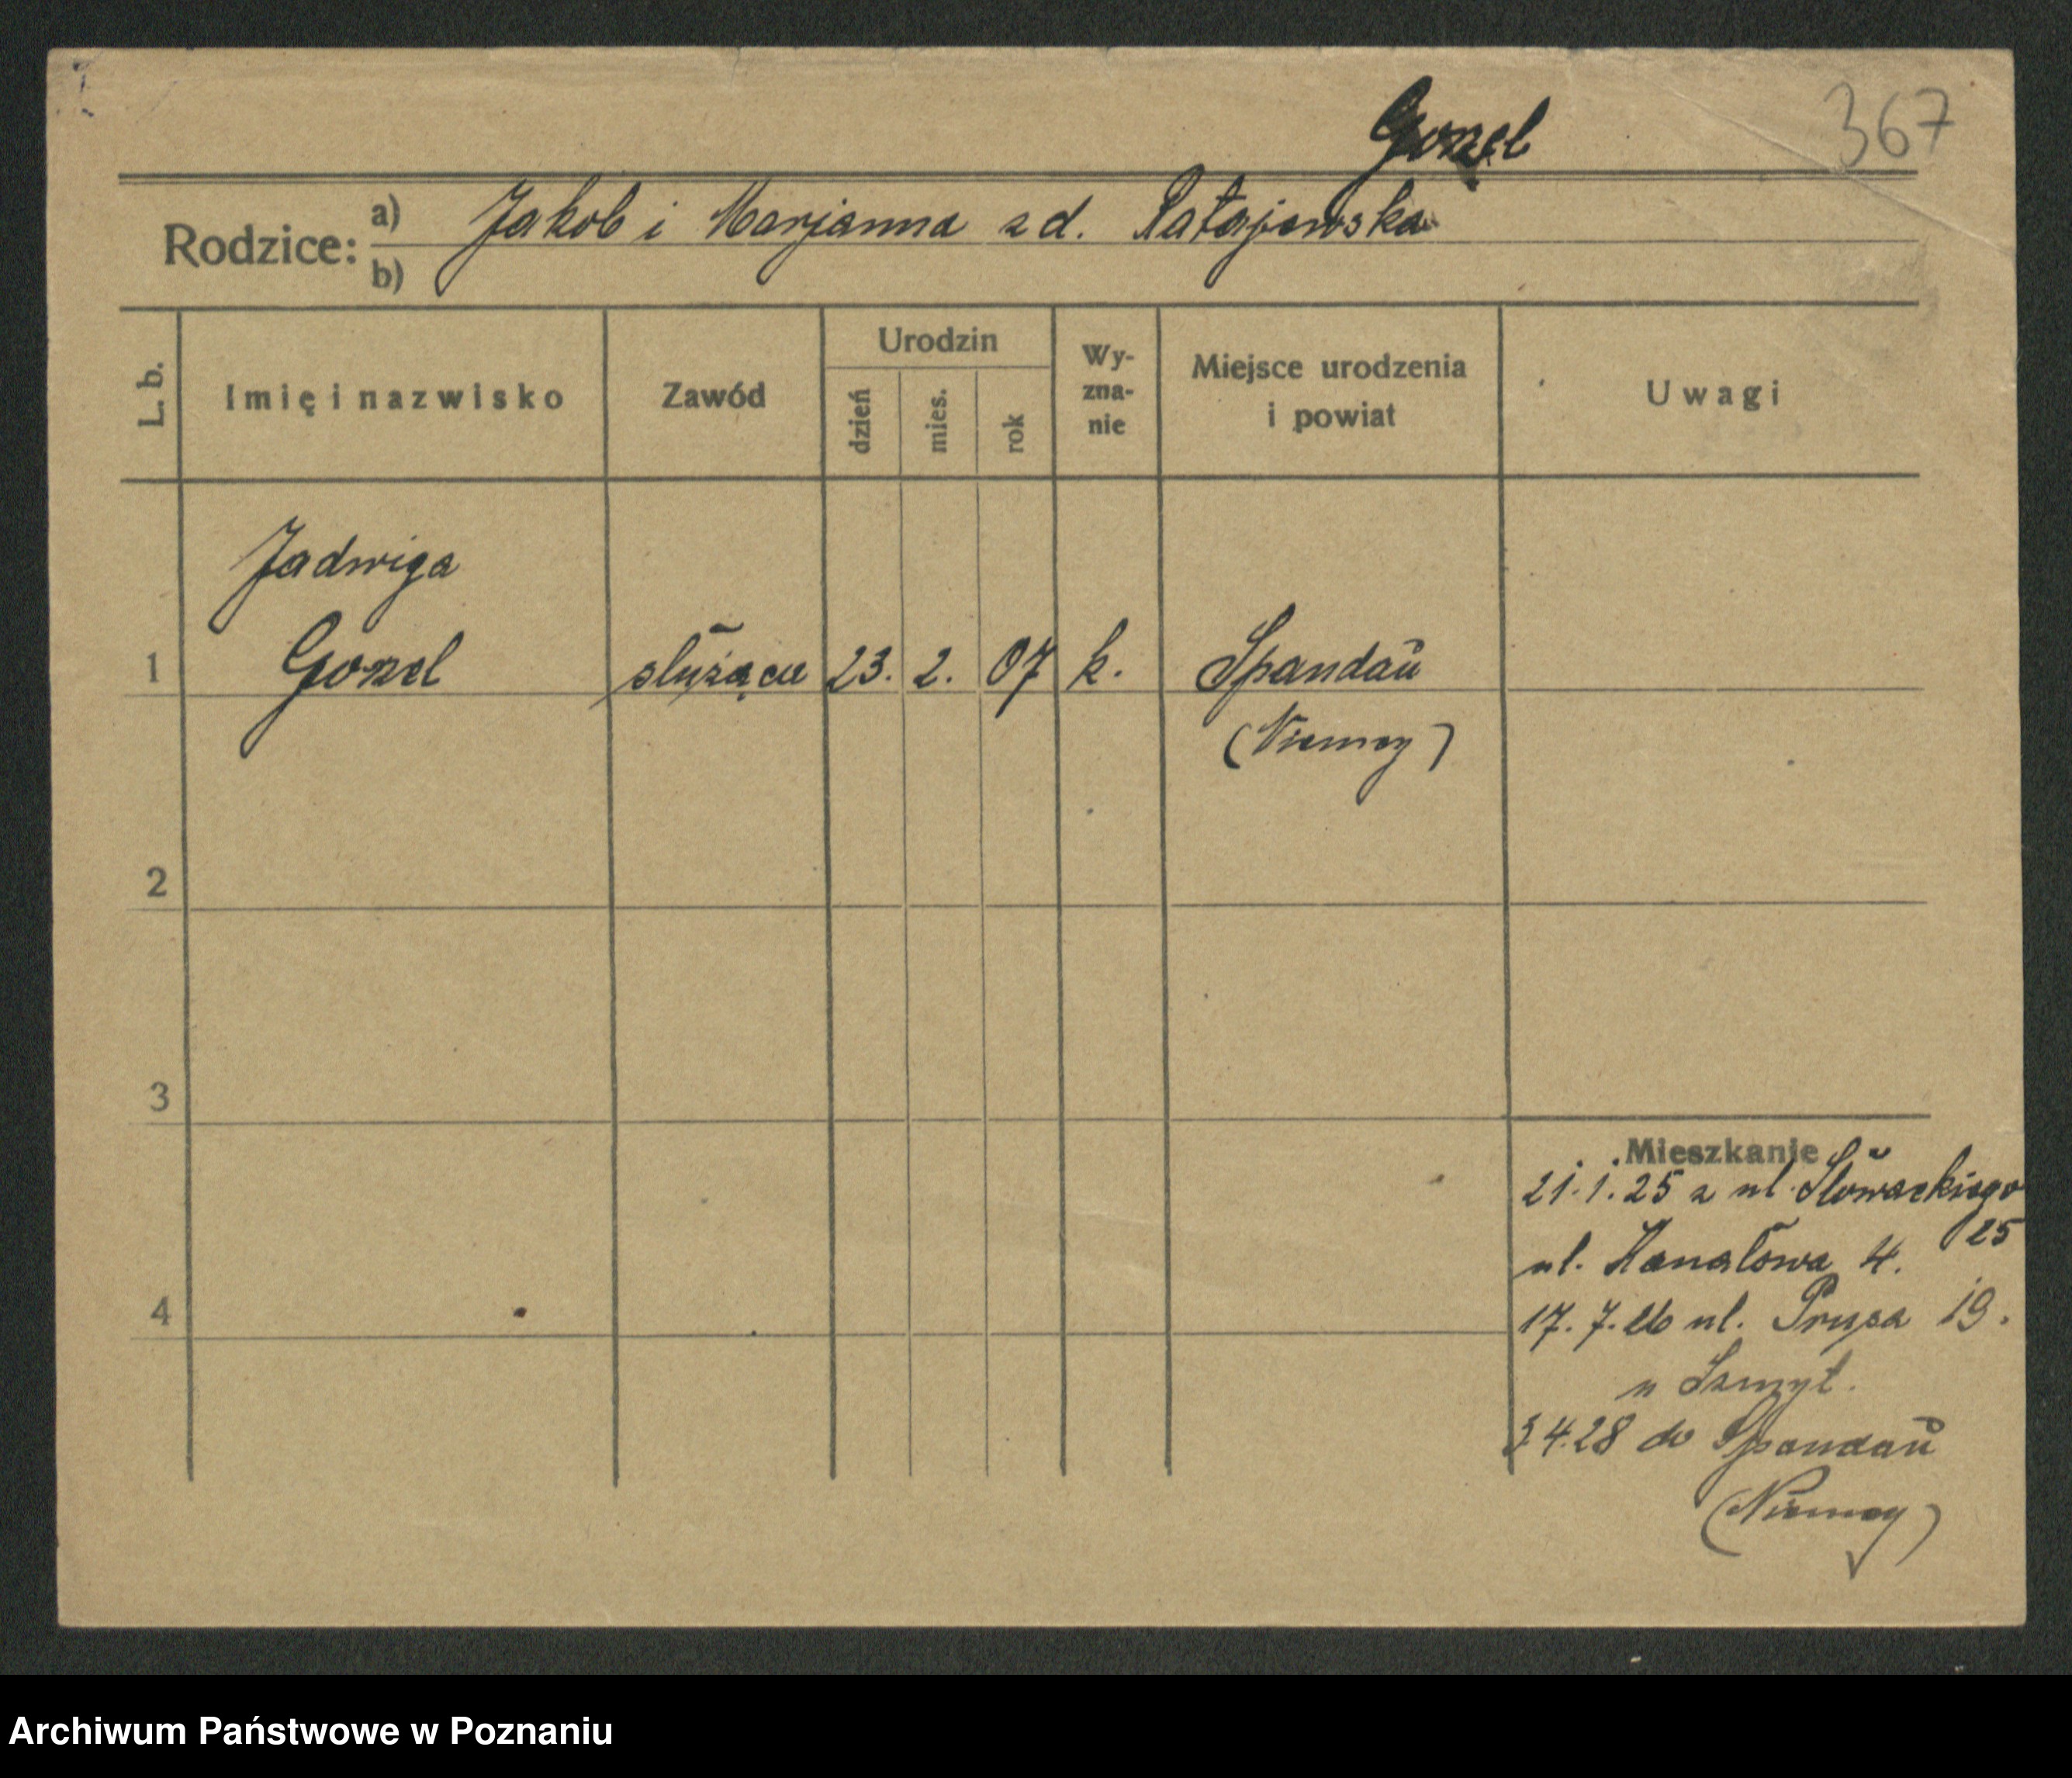 Gonel
367
Rodzice: a) Jakob i Marjanna zd. Ratajewska
b)
L. b. Imię i nazwisko Zawód Urodzin dzień mies. rok Wy-zna-nie Miejsce urodzenia i powiat Uwagi
Jadwiga
1 Gonel służąca 23. 2. 07 k. Spandau
(Niemcy)
2
3
Mieszkanie
21.1.25 z ul. Słowackiego
25
ul. Kanałowa 4.
4
17.7.26 ul. Prusa 19.
u Szmyt.
3.4.28 do Spandau
(Niemcy)
Archiwum Państwowe w Poznaniu